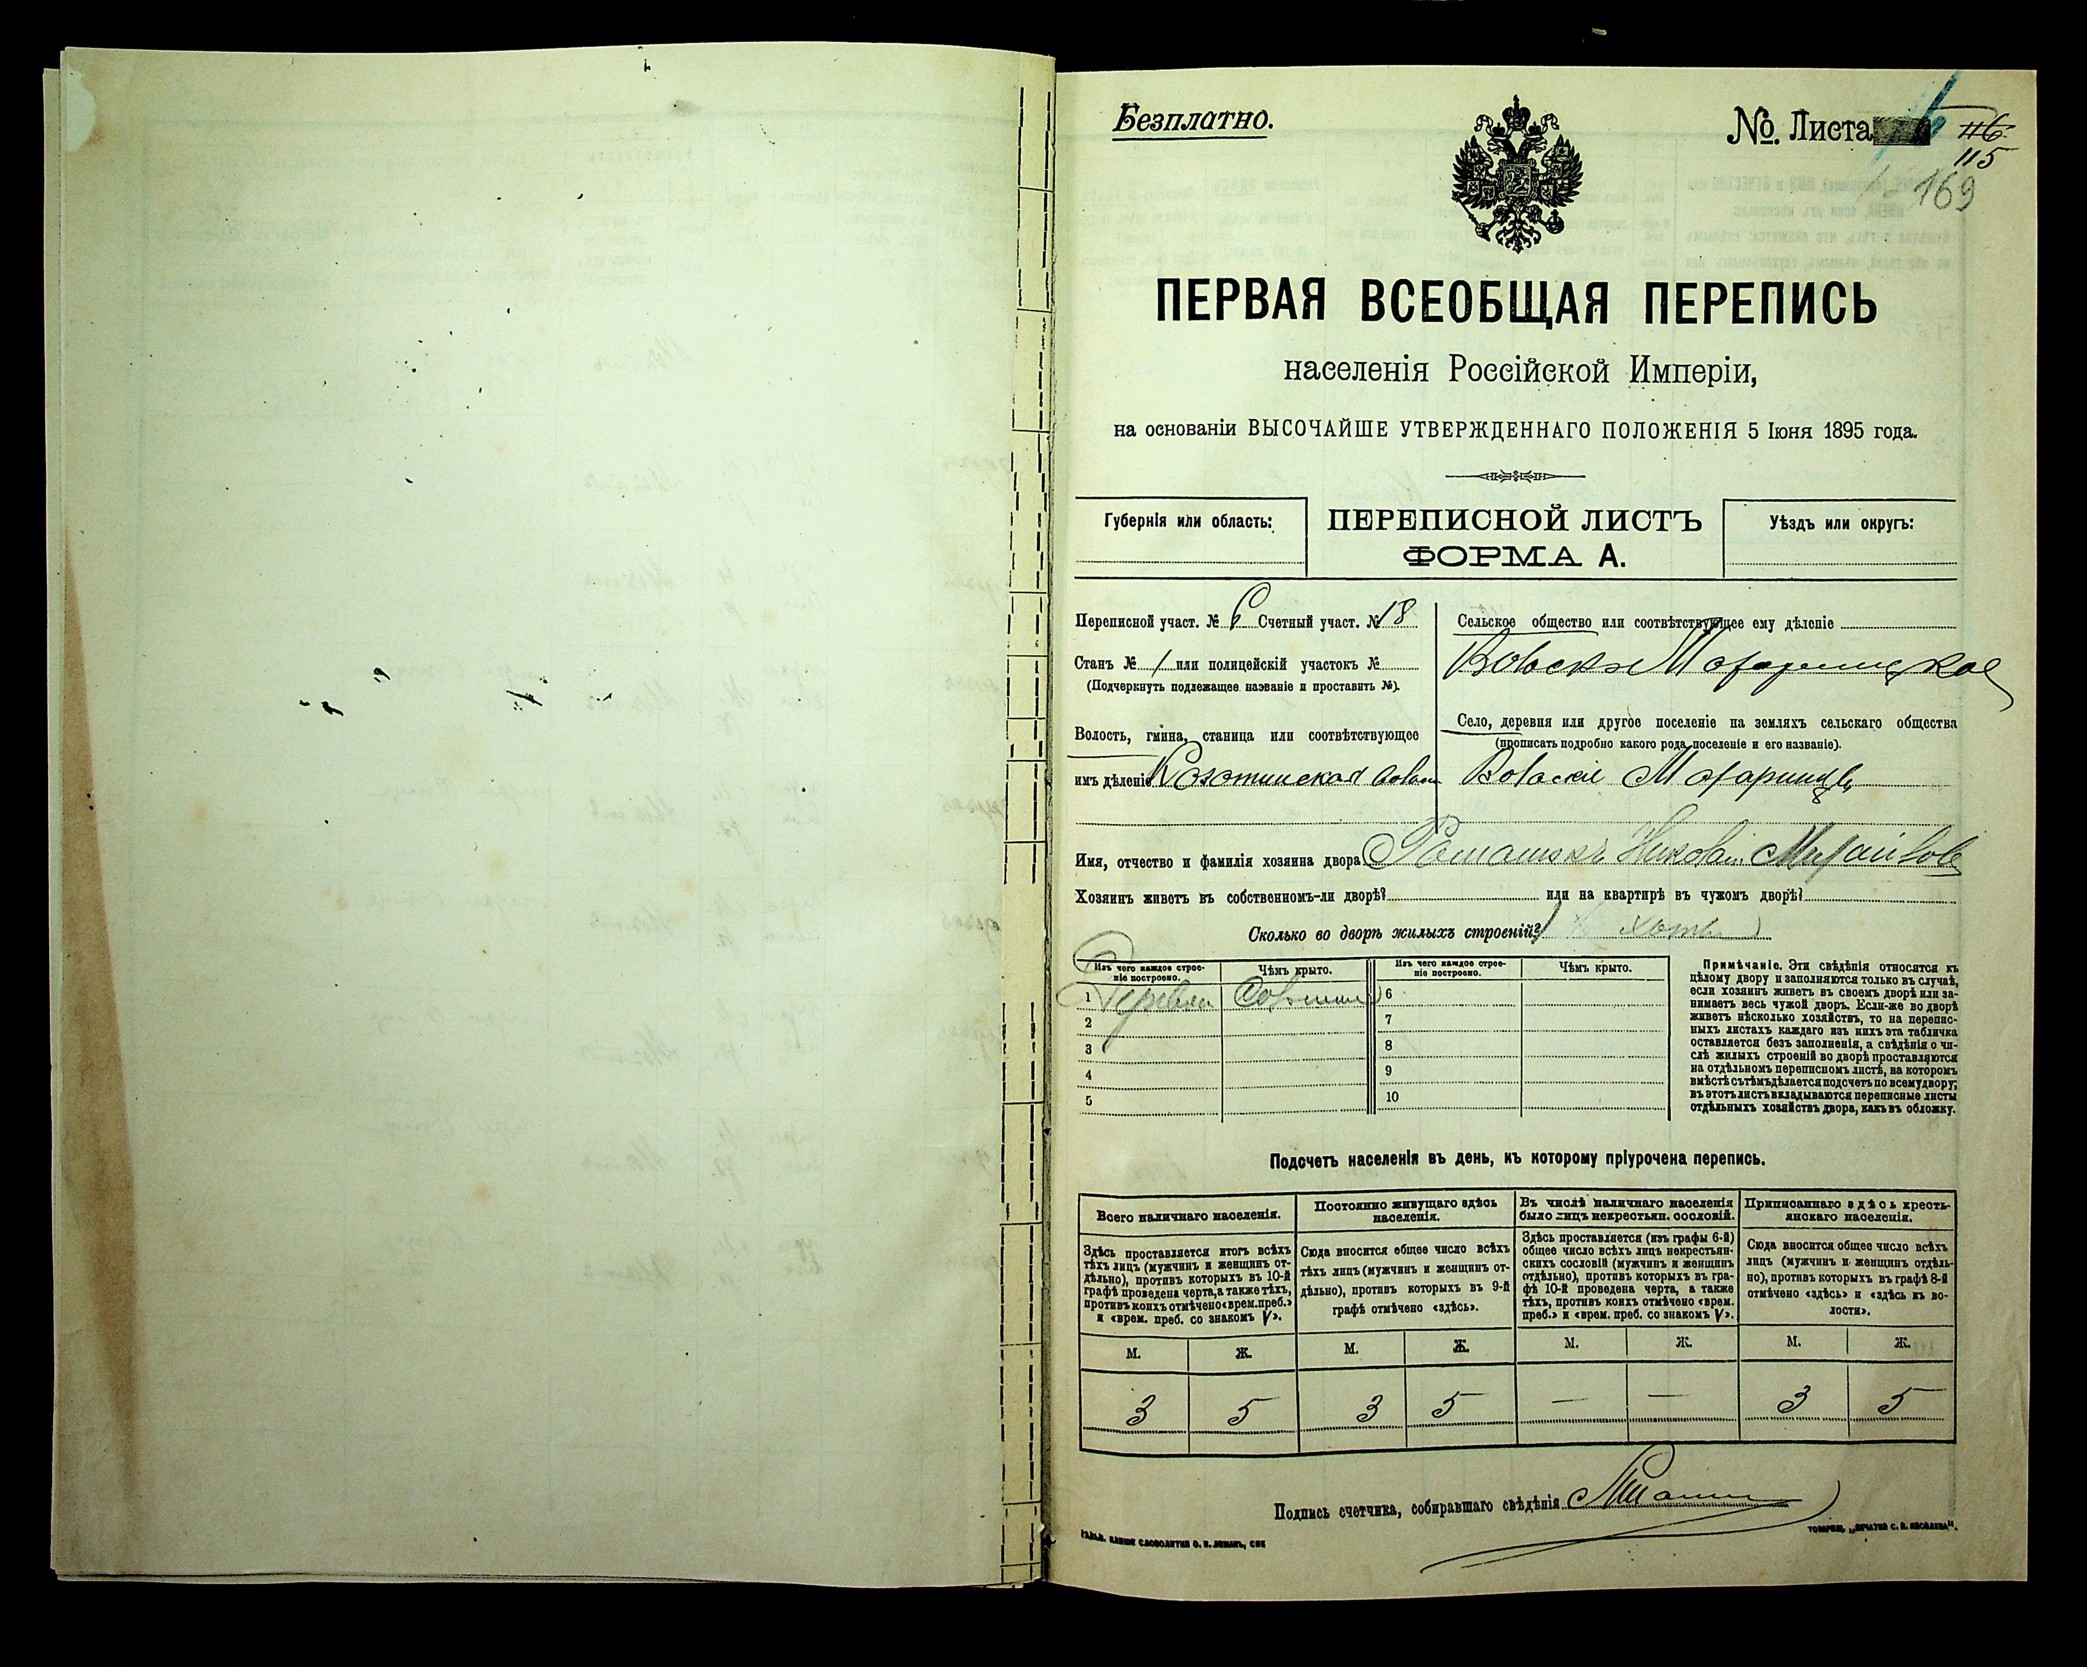 Безплатно.
№ Листа 116
115
169
ПЕРВАЯ ВСЕОБЩАЯ ПЕРЕПИСЬ
населенія Россійской Имперіи,
на основаніи ВЫСОЧАЙШЕ УТВЕРЖДЕННАГО ПОЛОЖЕНІЯ 5 Іюня 1895 года.
Губернія или область:
ПЕРЕПИСНОЙ ЛИСТЪ
ФОРМА А.
Уѣздъ или округъ:
Переписной участ. № 6 Счетный участ. № 18
Станъ № 1 или полицейскій участокъ №
(Подчеркнуть подлежащее названіе и проставить №).
Волость, гмина, станица или соотвѣтствующее
имъ дѣленіе
Сельское общество или соотвѣтствующее ему дѣленіе
Село, деревня или другое поселеніе на земляхъ сельскаго общества
(прописать подробно какого рода поселеніе и его названіе).
Имя, отчество и фамилія хозяина двора
Хозяинъ живетъ въ собственномъ-ли дворѣ? или на квартирѣ въ чужомъ дворѣ?
Сколько во дворѣ жилыхъ строеній? 1
Изъ чего каждое строе-
ніе построено.
Чѣмъ крыто.
Изъ чего каждое строе-
ніе построено.
Чѣмъ крыто.
1 6
2 7
3 8
4 9
5 10
Примѣчаніе. Эти свѣдѣнія относятся къ
цѣлому двору и заполняются только въ случаѣ,
если хозяинъ живетъ въ своемъ дворѣ или за-
нимаетъ весь чужой дворъ. Если-же во дворѣ
живетъ нѣсколько хозяйствъ, то на перепис-
ныхъ листахъ каждаго изъ нихъ эта табличка
оставляется безъ заполненія, а свѣдѣнія о чи-
слѣ жилыхъ строеній во дворѣ проставляются
на отдѣльномъ переписномъ листѣ, на которомъ
вмѣстѣ съ тѣмъ дѣлается подсчетъ по всему двору;
въ этотъ листъ вкладываются переписные листы
отдѣльныхъ хозяйствъ двора, какъ въ обложку.
Подсчетъ населенія въ день, къ которому пріурочена перепись.
Всего наличнаго населенія.
Здѣсь проставляется итогъ всѣхъ
тѣхъ лицъ (мужчинъ и женщинъ от-
дѣльно), противъ которыхъ въ 10-й
графѣ проведена черта, а также тѣхъ,
противъ коихъ отмѣчено «врем. преб.»
и «врем. преб. со знакомъ V».
Постоянно живущаго здѣсь
населенія.
Сюда вносится общее число всѣхъ
тѣхъ лицъ (мужчинъ и женщинъ от-
дѣльно), противъ которыхъ въ 9-й
графѣ отмѣчено «здѣсь».
Въ числѣ наличнаго населенія
было лицъ некрестьян. сословій.
Здѣсь проставляется (изъ графы 6-й)
общее число всѣхъ лицъ некрестьян-
скихъ сословій (мужчинъ и женщинъ
отдѣльно), противъ которыхъ въ гра-
фѣ 10-й проведена черта, а также
тѣхъ, противъ коихъ отмѣчено «врем.
преб.» и «врем. преб. со знакомъ V».
Приписаннаго здѣсь кресть-
янскаго населенія.
Сюда вносится общее число всѣхъ
лицъ (мужчинъ и женщинъ отдѣль-
но), противъ которыхъ въ графѣ 8-й
отмѣчено «здѣсь» и «здѣсь къ во-
лости».
М. Ж. М. Ж. М. Ж. М. Ж.
3 5 3 5 — — 3 5
Подпись счетчика, собиравшаго свѣдѣнія
ТОВАРИЩ. „ПЕЧАТНЯ С. П. ЯКОВЛЕВА“.